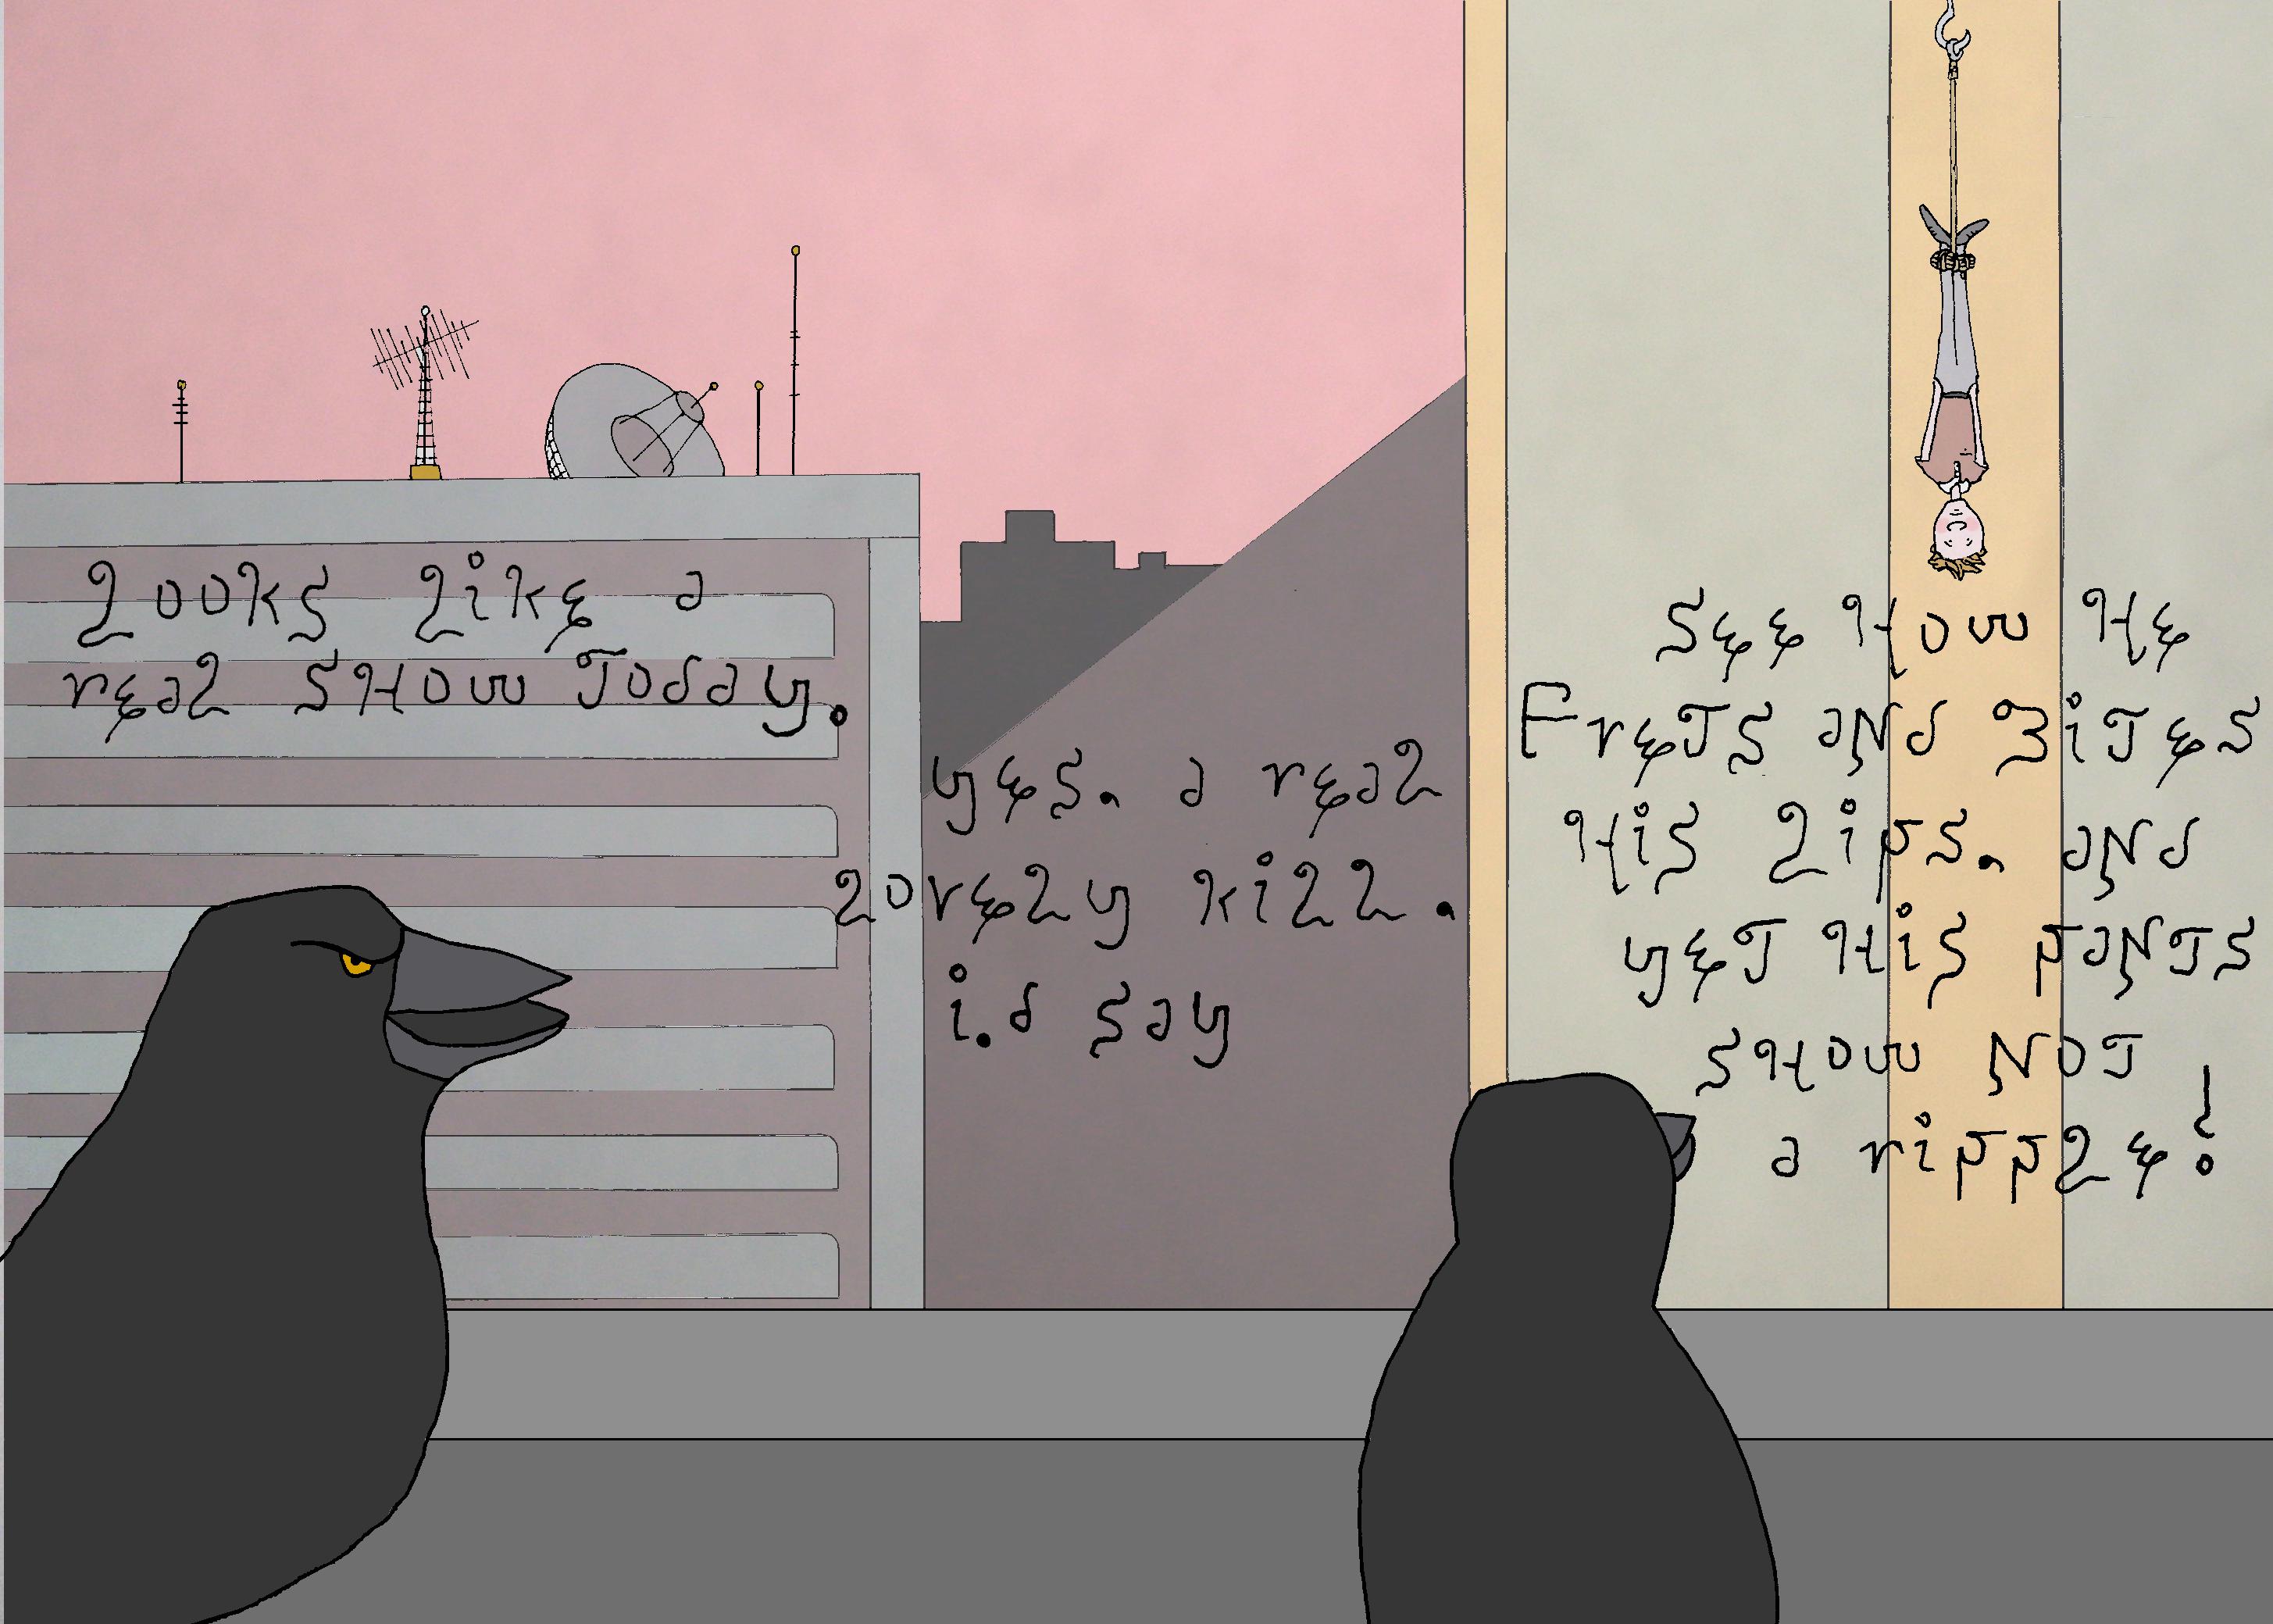 Looks like a
real show today.
yes. a real
lovely kill.
i.d say
See how he
Frets and Bites
his lips. and
yet his pants
show not
a ripple!